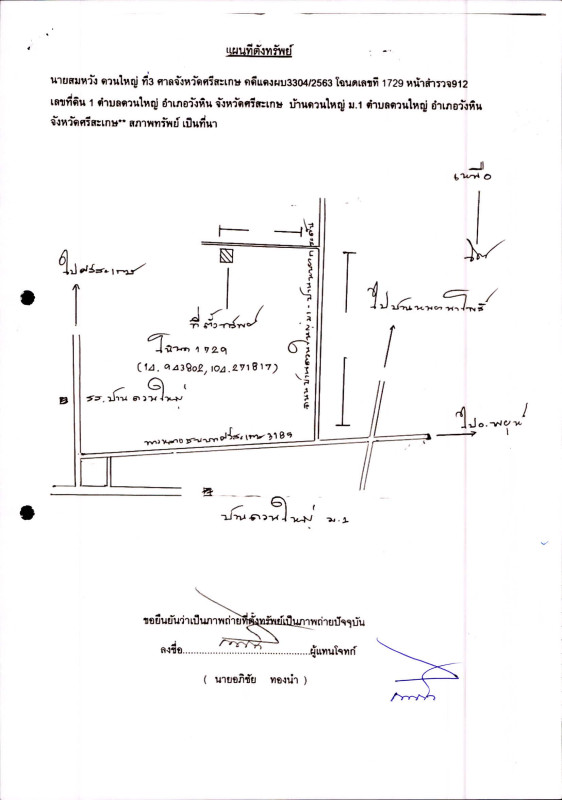 แผนที่ตั้งทรัพย์
นายสมหวัง ดวนใหญ่ ที่3 ศาลจังหวัดศรีสะเกษ คดีแดงผบ3304/2563 โฉนดเลขที่ 1729 หน้าสำรวจ912
เลขที่ดิน 1 ตำบลดวนใหญ่ อำเภอวังหิน จังหวัดศรีสะเกษ บ้านดวนใหญ่ ม.1 ตำบลดวนใหญ่ อำเภอวังหิน
จังหวัดศรีสะเกษ** สภาพทรัพย์ เป็นที่นา
เหนือ
ใต้
ไปศรีสะเกษ
ที่ตั้งทรัพย์
โฉนด 1729
(14.943802, 104.271817)
รร.บ้านดวนใหญ่
ทางหลวงชนบทศรีสะเกษ 3189
ไปอ.พยุห์
บ้านดวนใหญ่ ม.1
ขอยืนยันว่าเป็นภาพถ่ายที่ตั้งทรัพย์เป็นภาพถ่ายปัจจุบัน
ลงชื่อ..........................................ผู้แทนโจทก์
( นายอภิชัย ทองนำ )